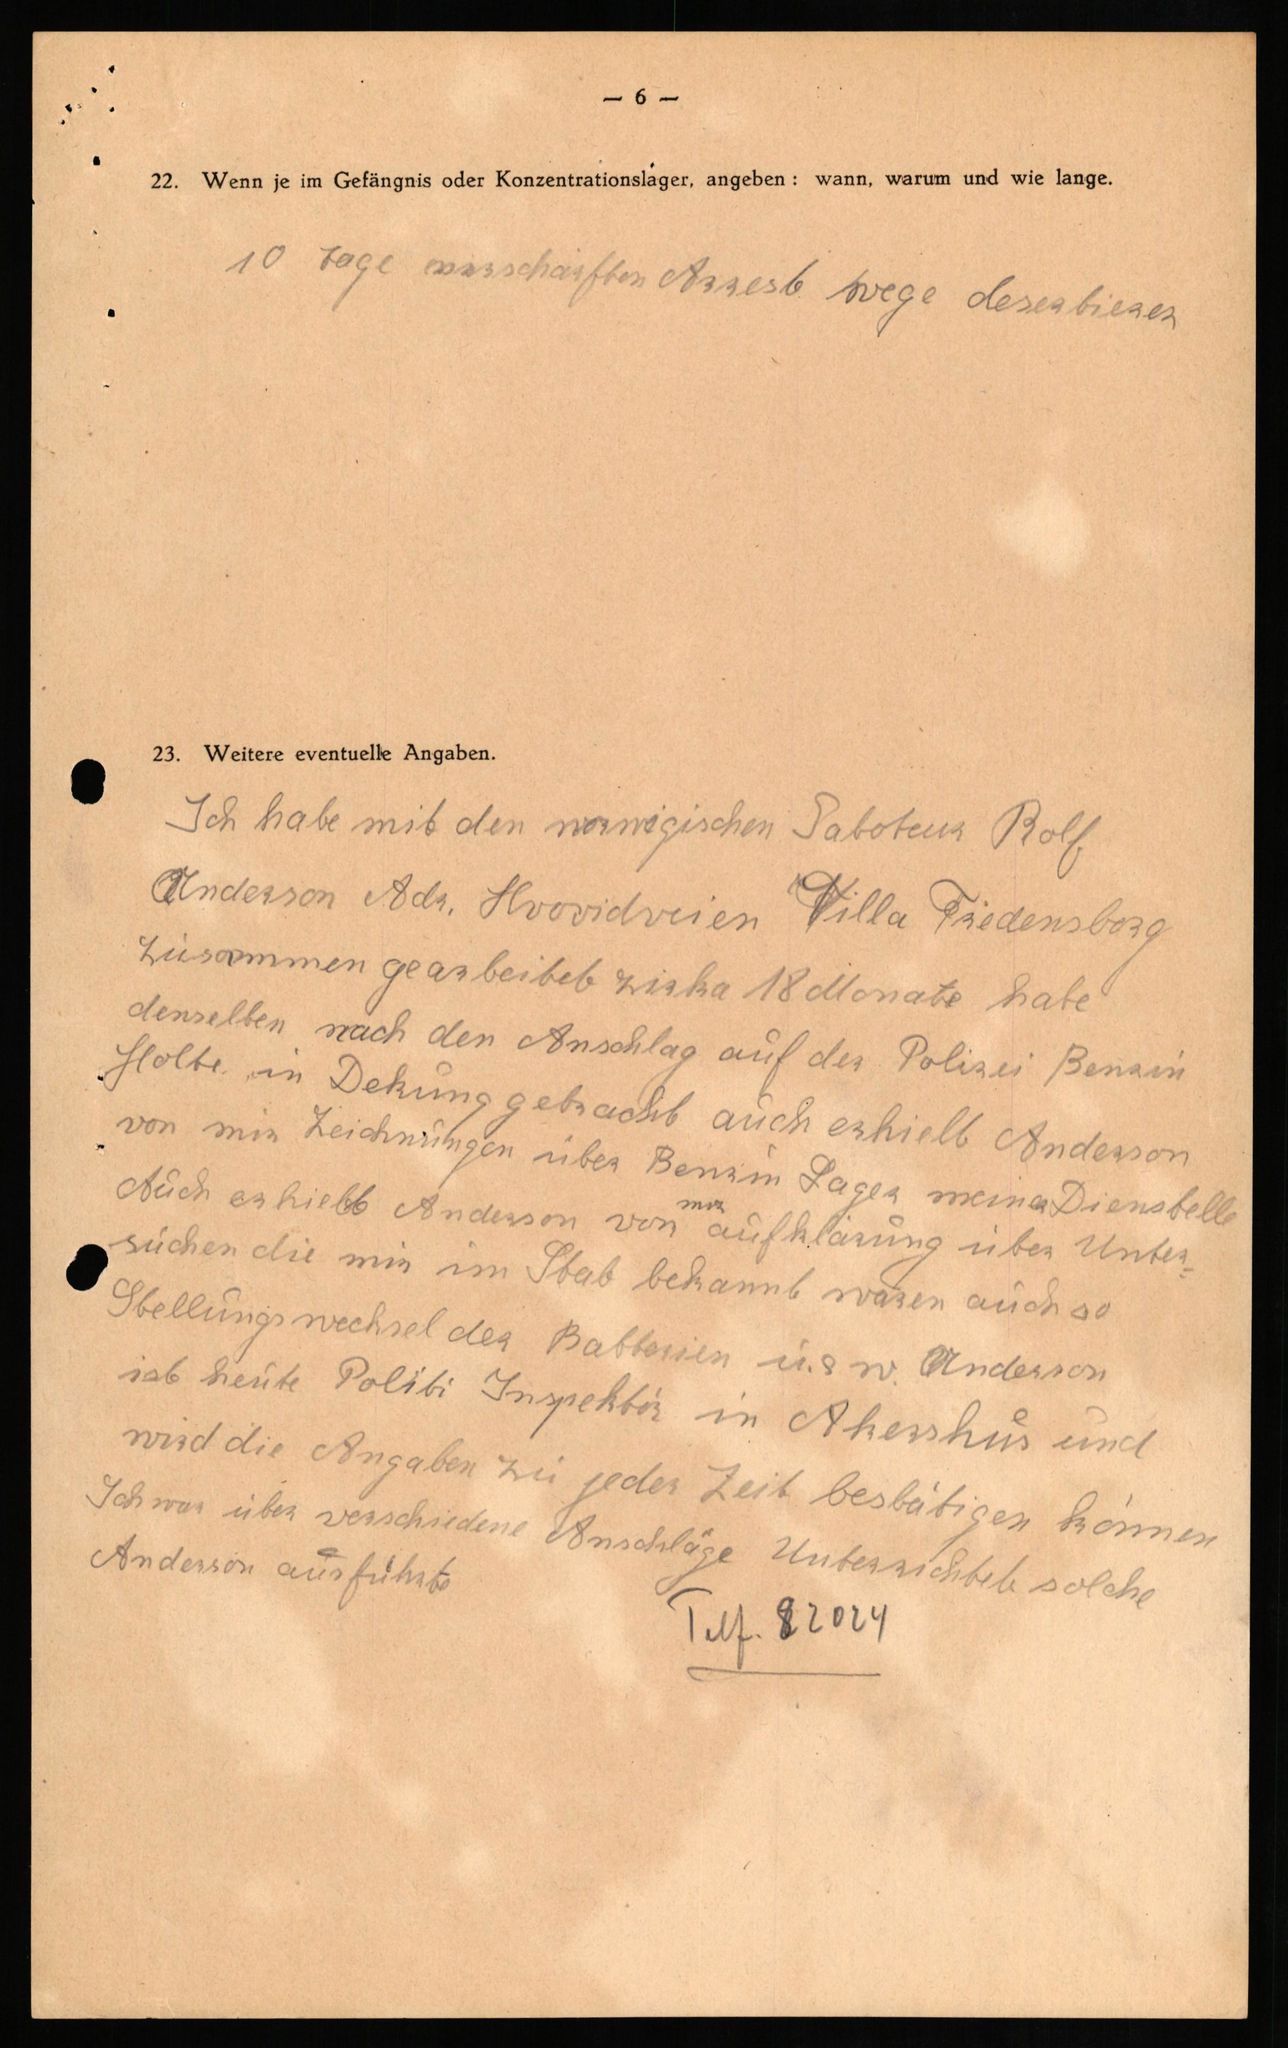 — 6 —
22. Wenn je im Gefängnis oder Konzentrationslager, angeben: wann, warum und wie lange.
10 tage verschärften Arrest wege deserbierer
23. Weitere eventuelle Angaben.
Ich habe mit den norwegischen Saboteur Rolf
Anderson Adr. Hvovidveien Villa Friedensborg
zusammen gearbeitet zirka 18 Monate habe
denselben nach den Anschlag auf der Polizei Benzin
Holte in Dekung gebracht auch erhielt Anderson
von mir Zeichnungen über Benzin Lager meiner Dienstelle
Auch erhielt Anderson von mir aufklärung über Unter-
suchen die mir im Stab bekannt waren auch so
Stellungswechsel der Batterien u.s w. Anderson
ist heute Politi Inspektör in Akershus und
wird die Angaben zu jeder Zeit bestätigen können
Ich war über verschiedene Anschläge Unterrichtet solche
Anderson ausführte
Telf. 82024